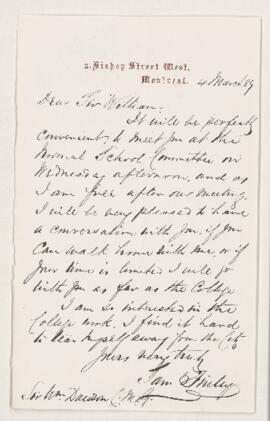 2. Bishop Street West.
Montreal. 4 March 89
Dear Sir William:
It will be perfectly
convenient to meet you at the
Normal School Committee on
Wednesday afternoon, and as
I am free after our meeting
I will be very pleased to have
a conversation with you, if you
can walk home with me or if
your time is limited I will go
with you as far as the College
I am so interested in the
College work, I find it hard
to tear myself away from the City
Yours very truly
Sam Finley
Sir Wm Dawson C.M.G.